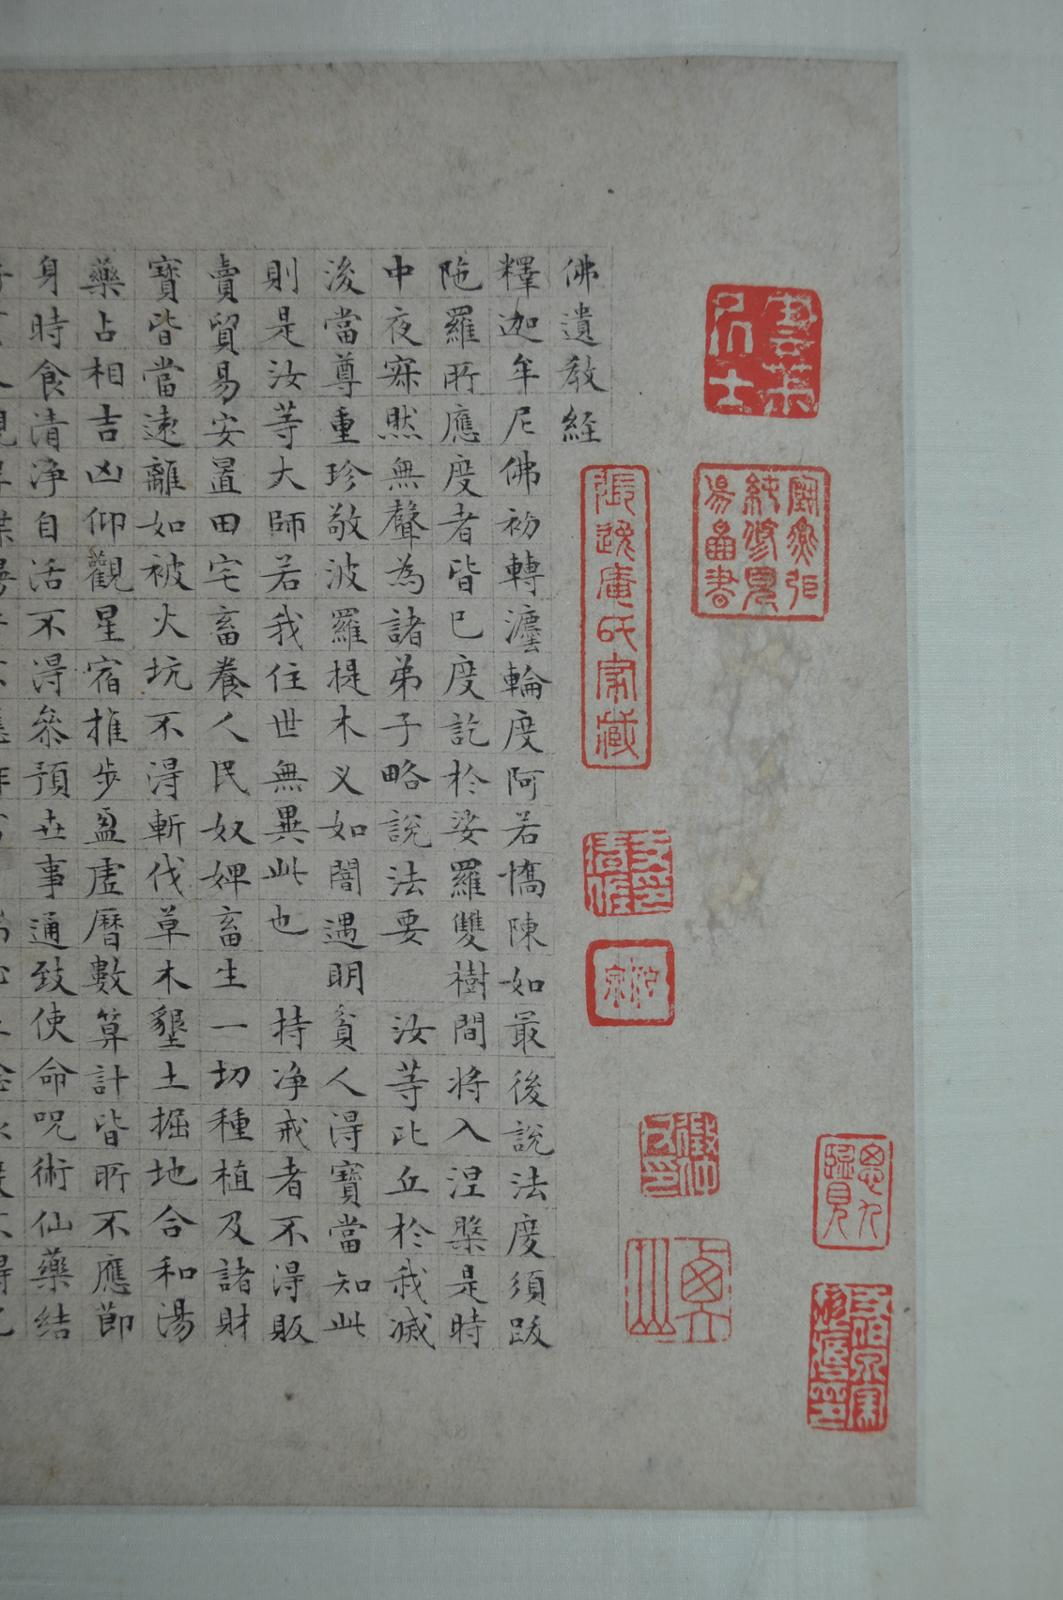 張逸庵氏家藏
佛遺教経
釋迦牟尼佛初轉灋輪度阿若憍陳如最後說法度須跋
陁羅所應度者皆已度訖於娑羅雙樹間將入涅槃是時
中夜寂然無聲為諸弟子略說法要 汝等比丘於我滅
後當尊重珍敬波羅提木义如闇遇明貧人得寶當知此
則是汝等大師若我住世無異此也 持净戒者不得販
賣貿易安置田宅畜養人民奴婢畜生一切種植及諸財
寶皆當遠離如被火坑不得斬伐草木墾土掘地合和湯
藥占相吉凶仰觀星宿推步盈虛曆數算計皆所不應節
身時食清净自活不得叅預世事通致使命呪術仙藥結